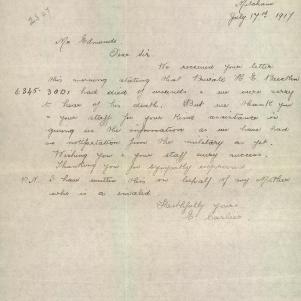 Mitcham
July 17th 1917
Mr Edmunds
Dear Sir
We received your letter
this morning stating that Private
had died of wounds & we were sorry
to hear of his death. But we thank you
& your staff for your kind assistance in
giving us the information as we have had
no notification from the military as yet.
Wishing you & your staff every success.
Thanking you for sympathy
I have written this on behalf of my Mother
who is a invalid
Faithfully yours